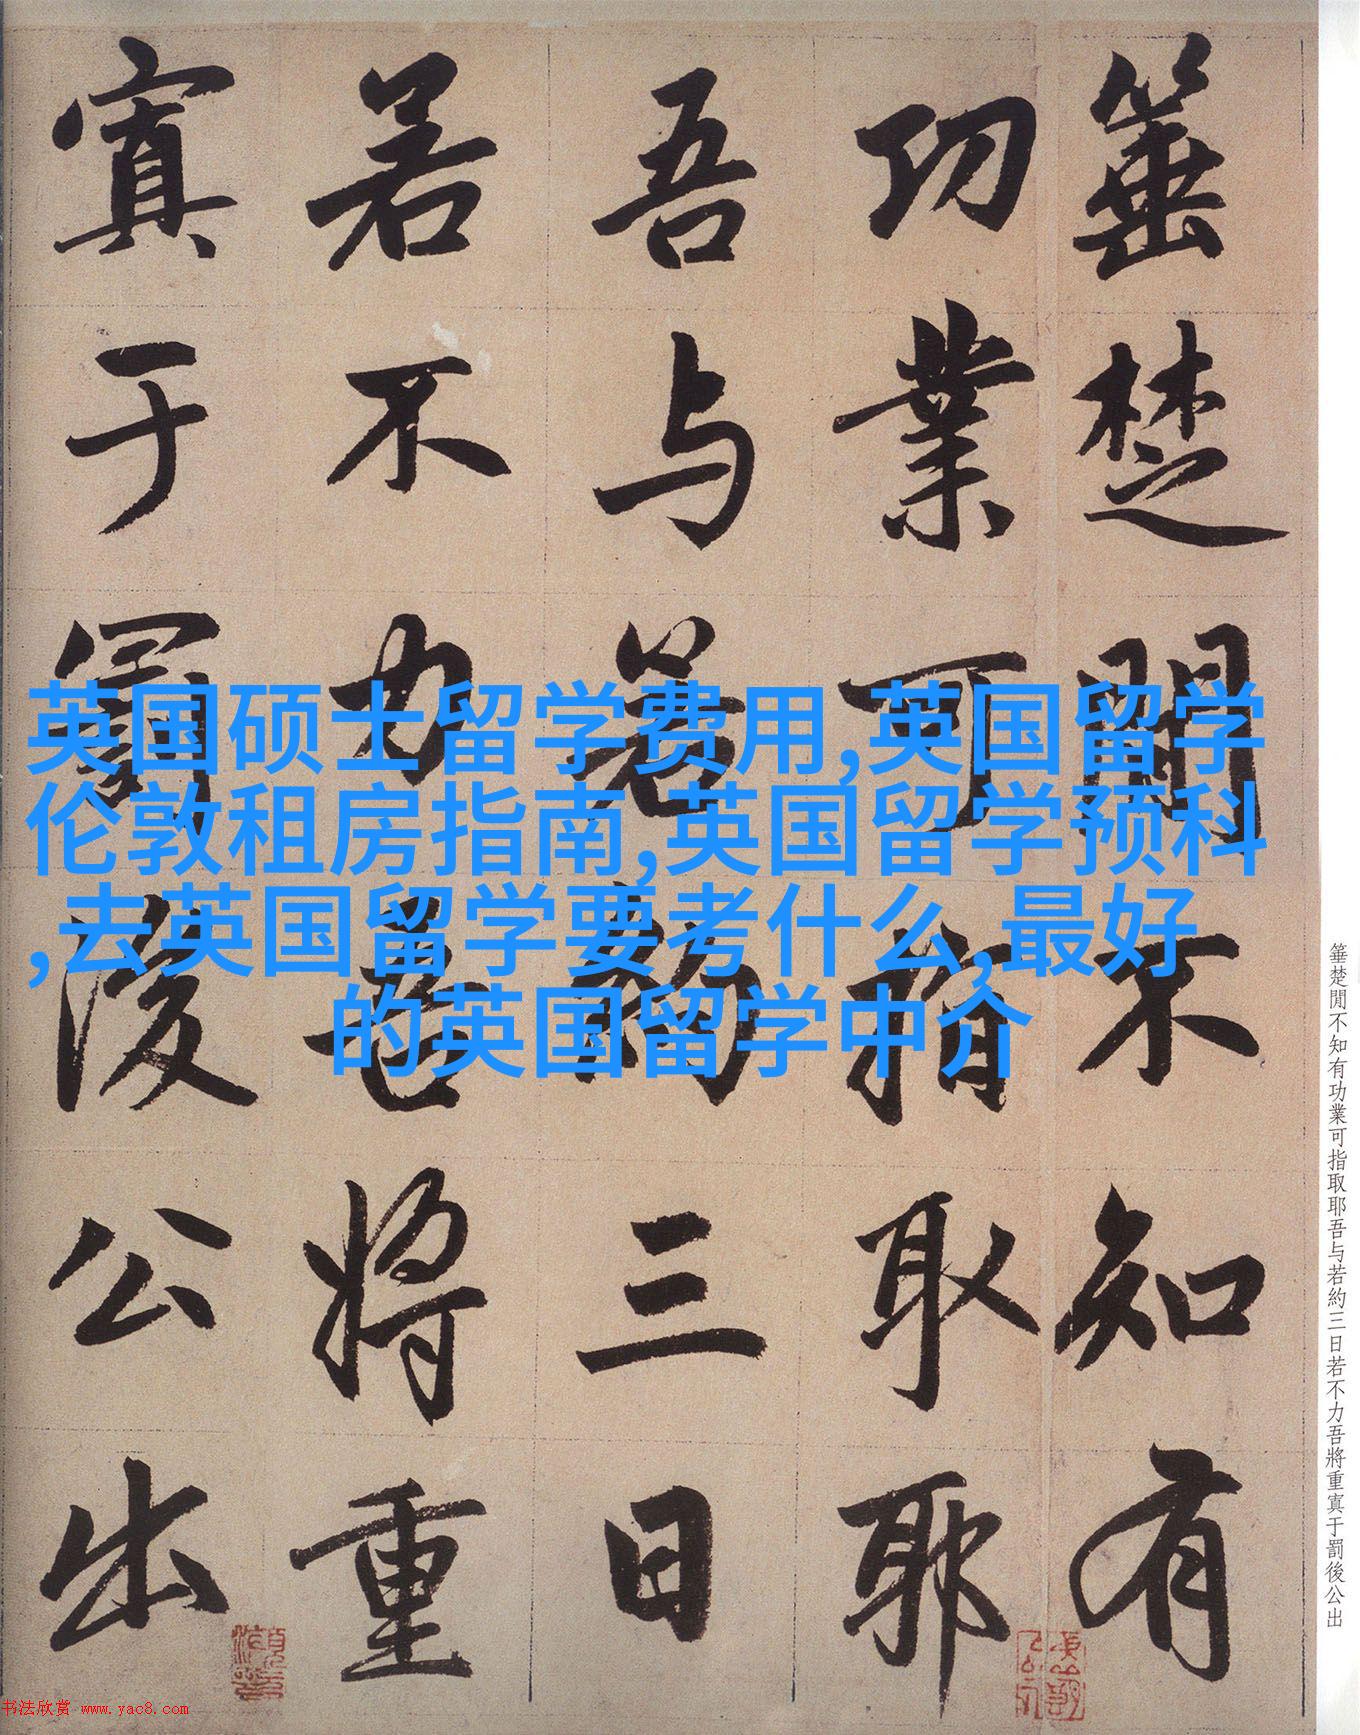 箠楚閒不知有
功業可指取耶
吾与若約三日
若不力吾將重
寘于罰後公出
英国硕士留学费用,英国留学
伦敦租房指南,英国留学预科
,去英国留学要考什么,最好
的英国留学中介
箠楚閒不知有功業可指取耶吾与若約三日若不力吾將重寘于罰後公出
书法欣赏 www.yac8.com